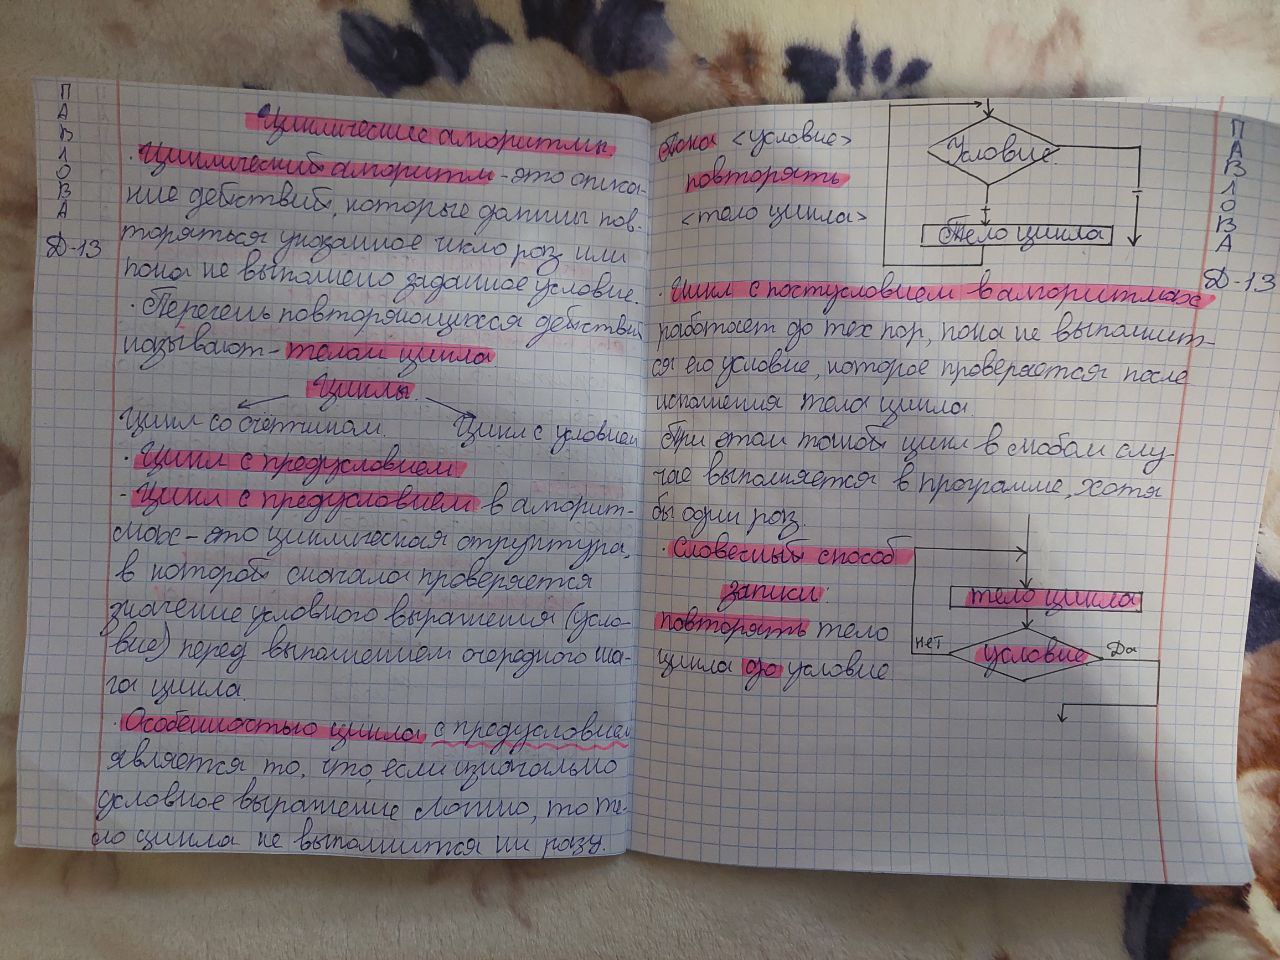 ПАВЛОВА
Д-13
Циклические алгоритмы.
· Циклический алгоритм - это описа-
ние действий, которые должны пов-
торяться указанное число раз или
пока не выполнено заданное условие.
· Перечень повторяющихся действий
называют - телом цикла.
Циклы.
Цикл со счётчиком. Цикл с условием
· Цикл с предусловием
- Цикл с предусловием в алгорит-
мах - это циклическая структура,
в которой сначала проверяется
значение условного выражения (усло-
вие) перед выполнением очередного ша-
га цикла.
· Особенностью цикла с предусловием
является то, что, если изначально
условное выражение ложно, то те-
ло цикла не выполнится ни разу.
Пока <условие>
повторять
<тело цикла>
Условие
Тело цикла
ПАВЛОВА
Д-13
· Цикл с постусловием в алгоритмах
работает до тех пор, пока не выполнит-
ся его условие, которое проверяется после
исполнения тела цикла.
При этом такой цикл в любом слу-
чае выполняется в программе, хотя
бы один раз.
· Словесный способ
записи:
повторять тело
цикла до условие
тело цикла
условие
нет
Да